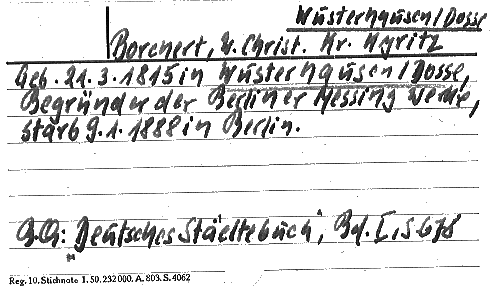 Wusterhausen/Dosse
Borchert, W. Christ. Kr. Kyritz
Geb. 21. 3. 1815 in Wusterhausen/Dosse,
Begründer der Berliner Messing Werke,
starb 9. 1. 1888 in Berlin.
B.Q.: "Deutsches Städtebuch", Bd. I, S 678
Reg. 10. Stichnote 1. 50. 232000. A. 803. S. 4062